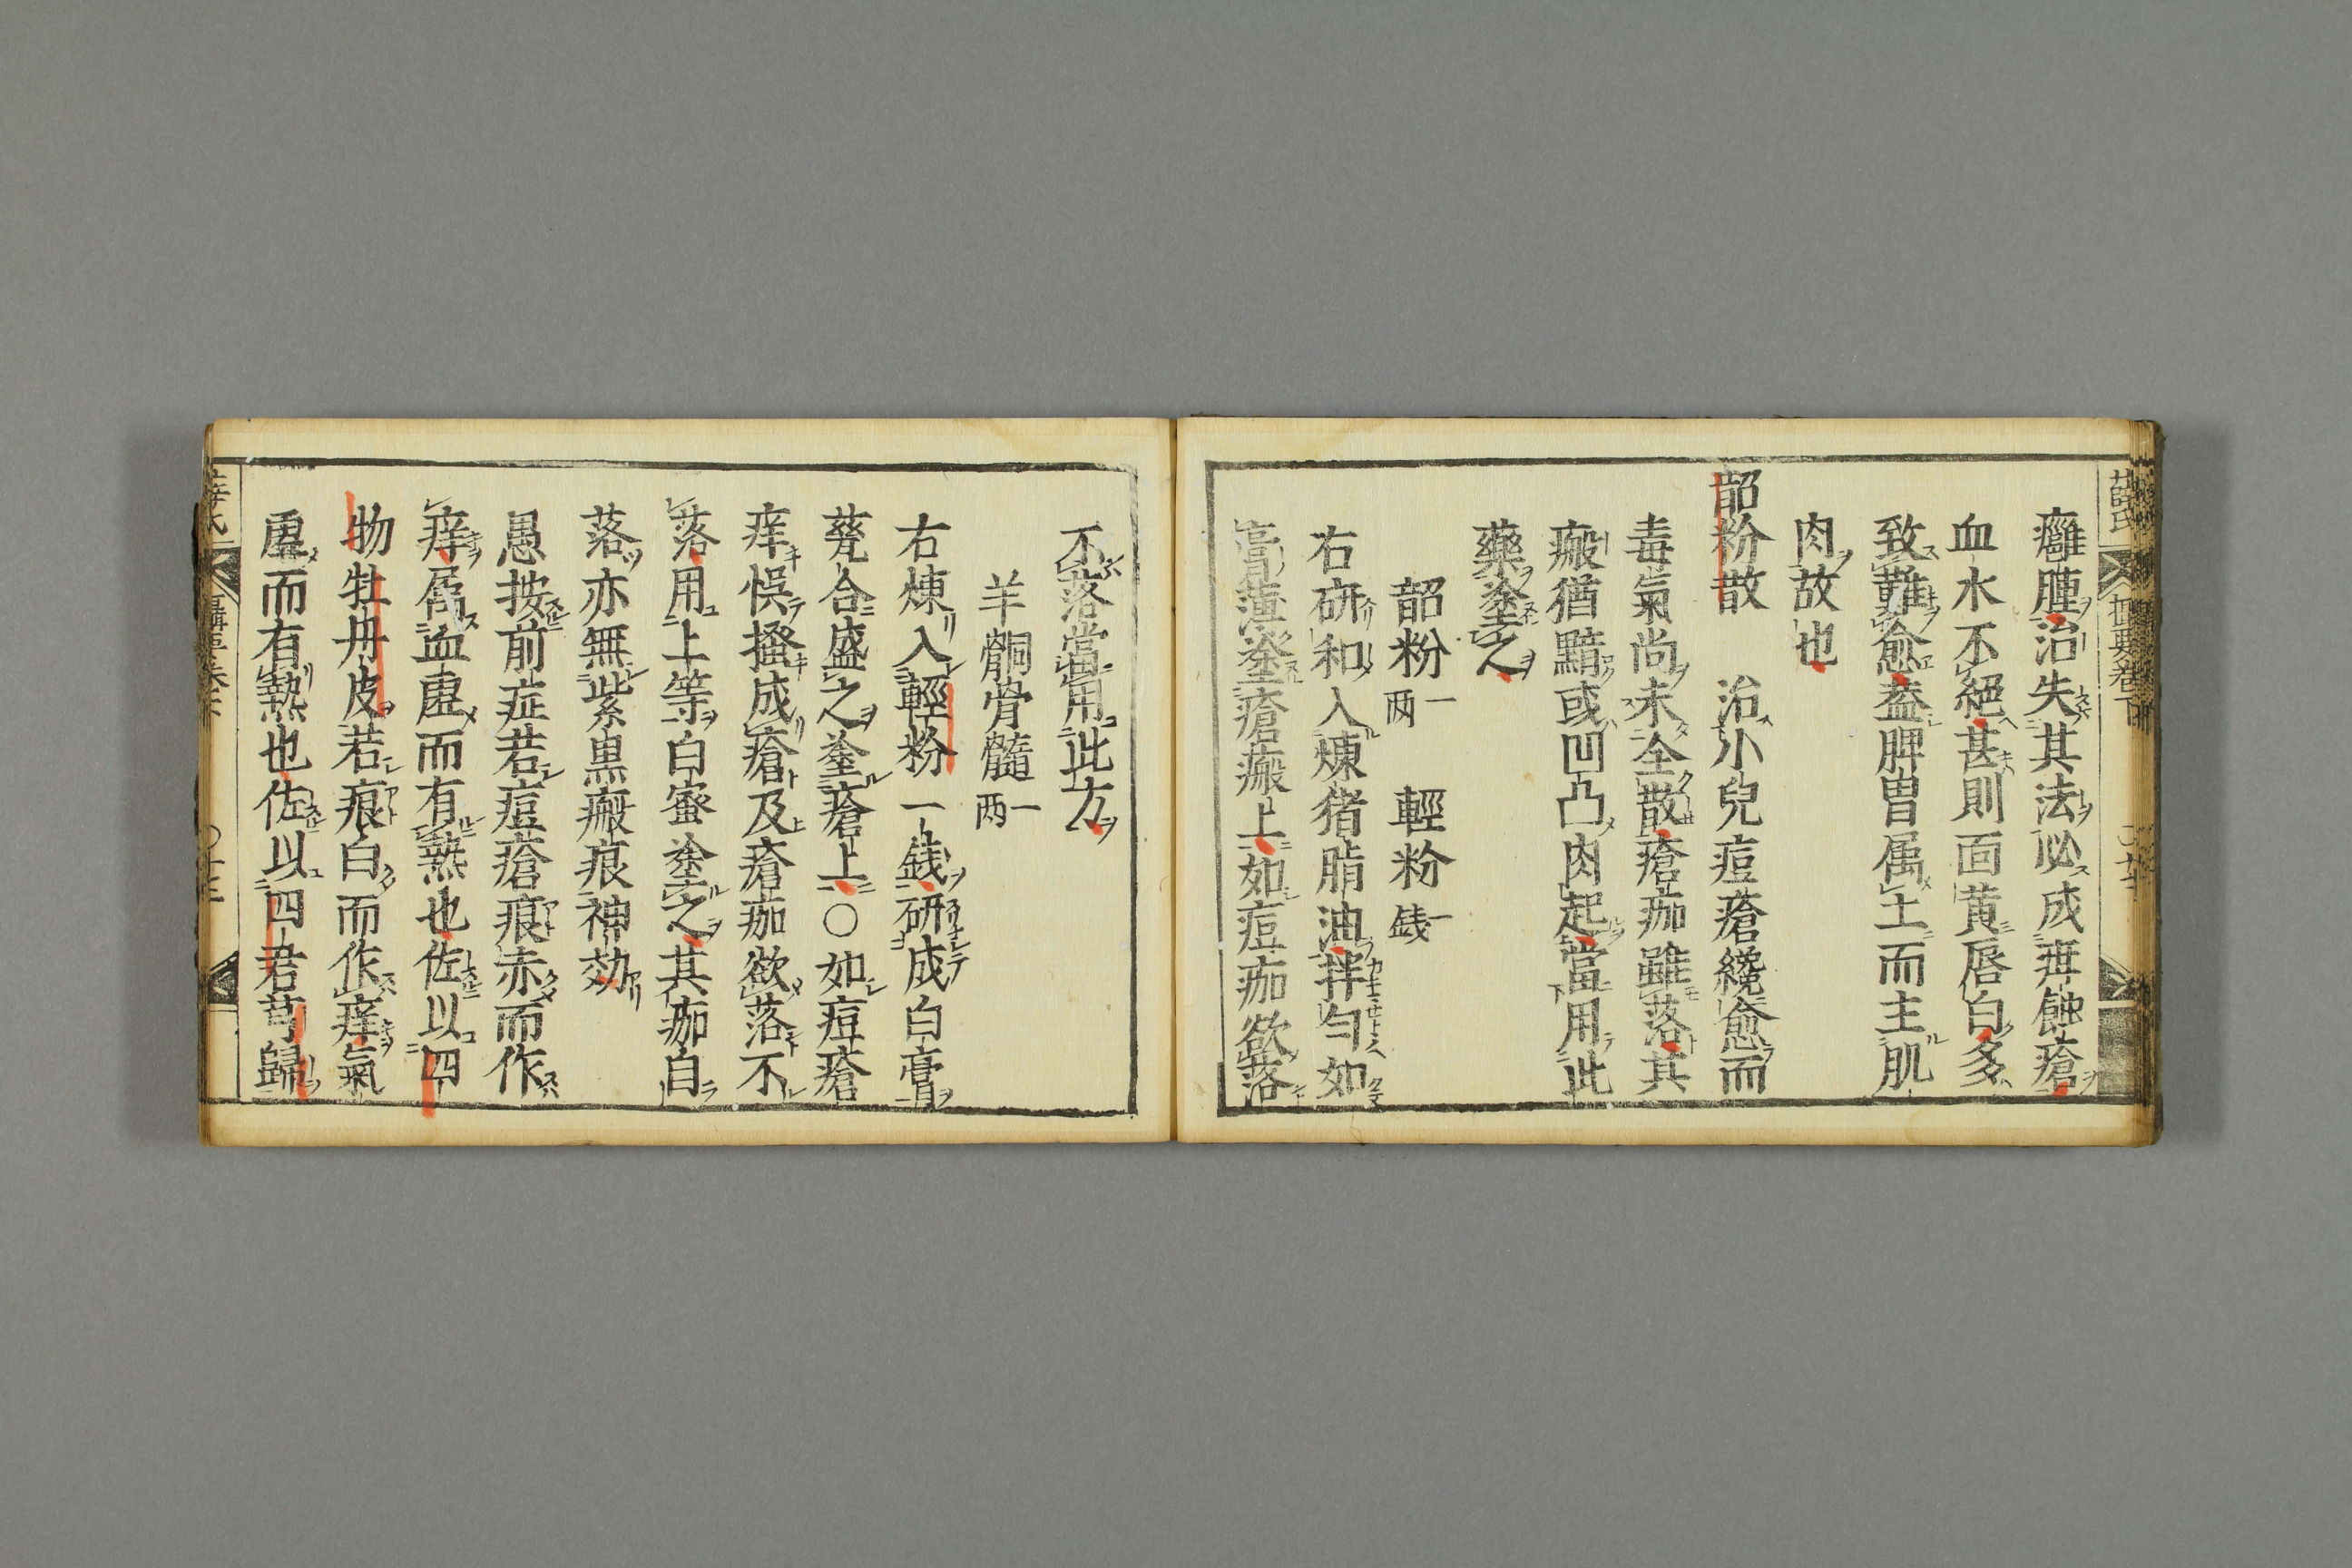 薛氏 撮要卷下 〇廿二
癰腫治失其法必成疳蝕瘡
血水不絕甚則面黃唇白多
致難愈蓋脾胃属土而主肌
肉故也
韶粉散 治小兒痘瘡纔愈而
毒氣尚未全散瘡痂雖落其
瘢猶黯或凹凸肉起當用此
藥塗之
韶粉一两 輕粉一銭
右研和入煉猪脂油拌勻如
膏薄塗瘡瘢上如痘痂欲落
不落當用此方
羊䯚骨髓一两
右煉入輕粉一銭研成白膏
甆合盛之塗瘡上〇如痘瘡
痒悞搔成瘡及瘡痂欲落不
落用上等白蜜塗之其痂自
落亦無紫黒瘢痕神効
愚按前症若痘瘡痕赤而作
痒属血虚而有熱也佐以四
物牡丹皮若痕白而作痒氣
虚而有熱也佐以四君芎歸